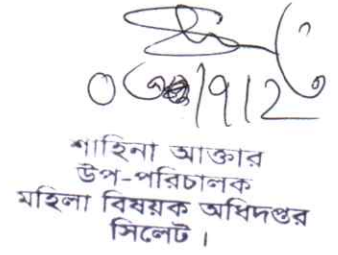 শাহিনা আক্তার
উপ-পরিচালক
মহিলা বিষয়ক অধিদপ্তর
সিলেট।